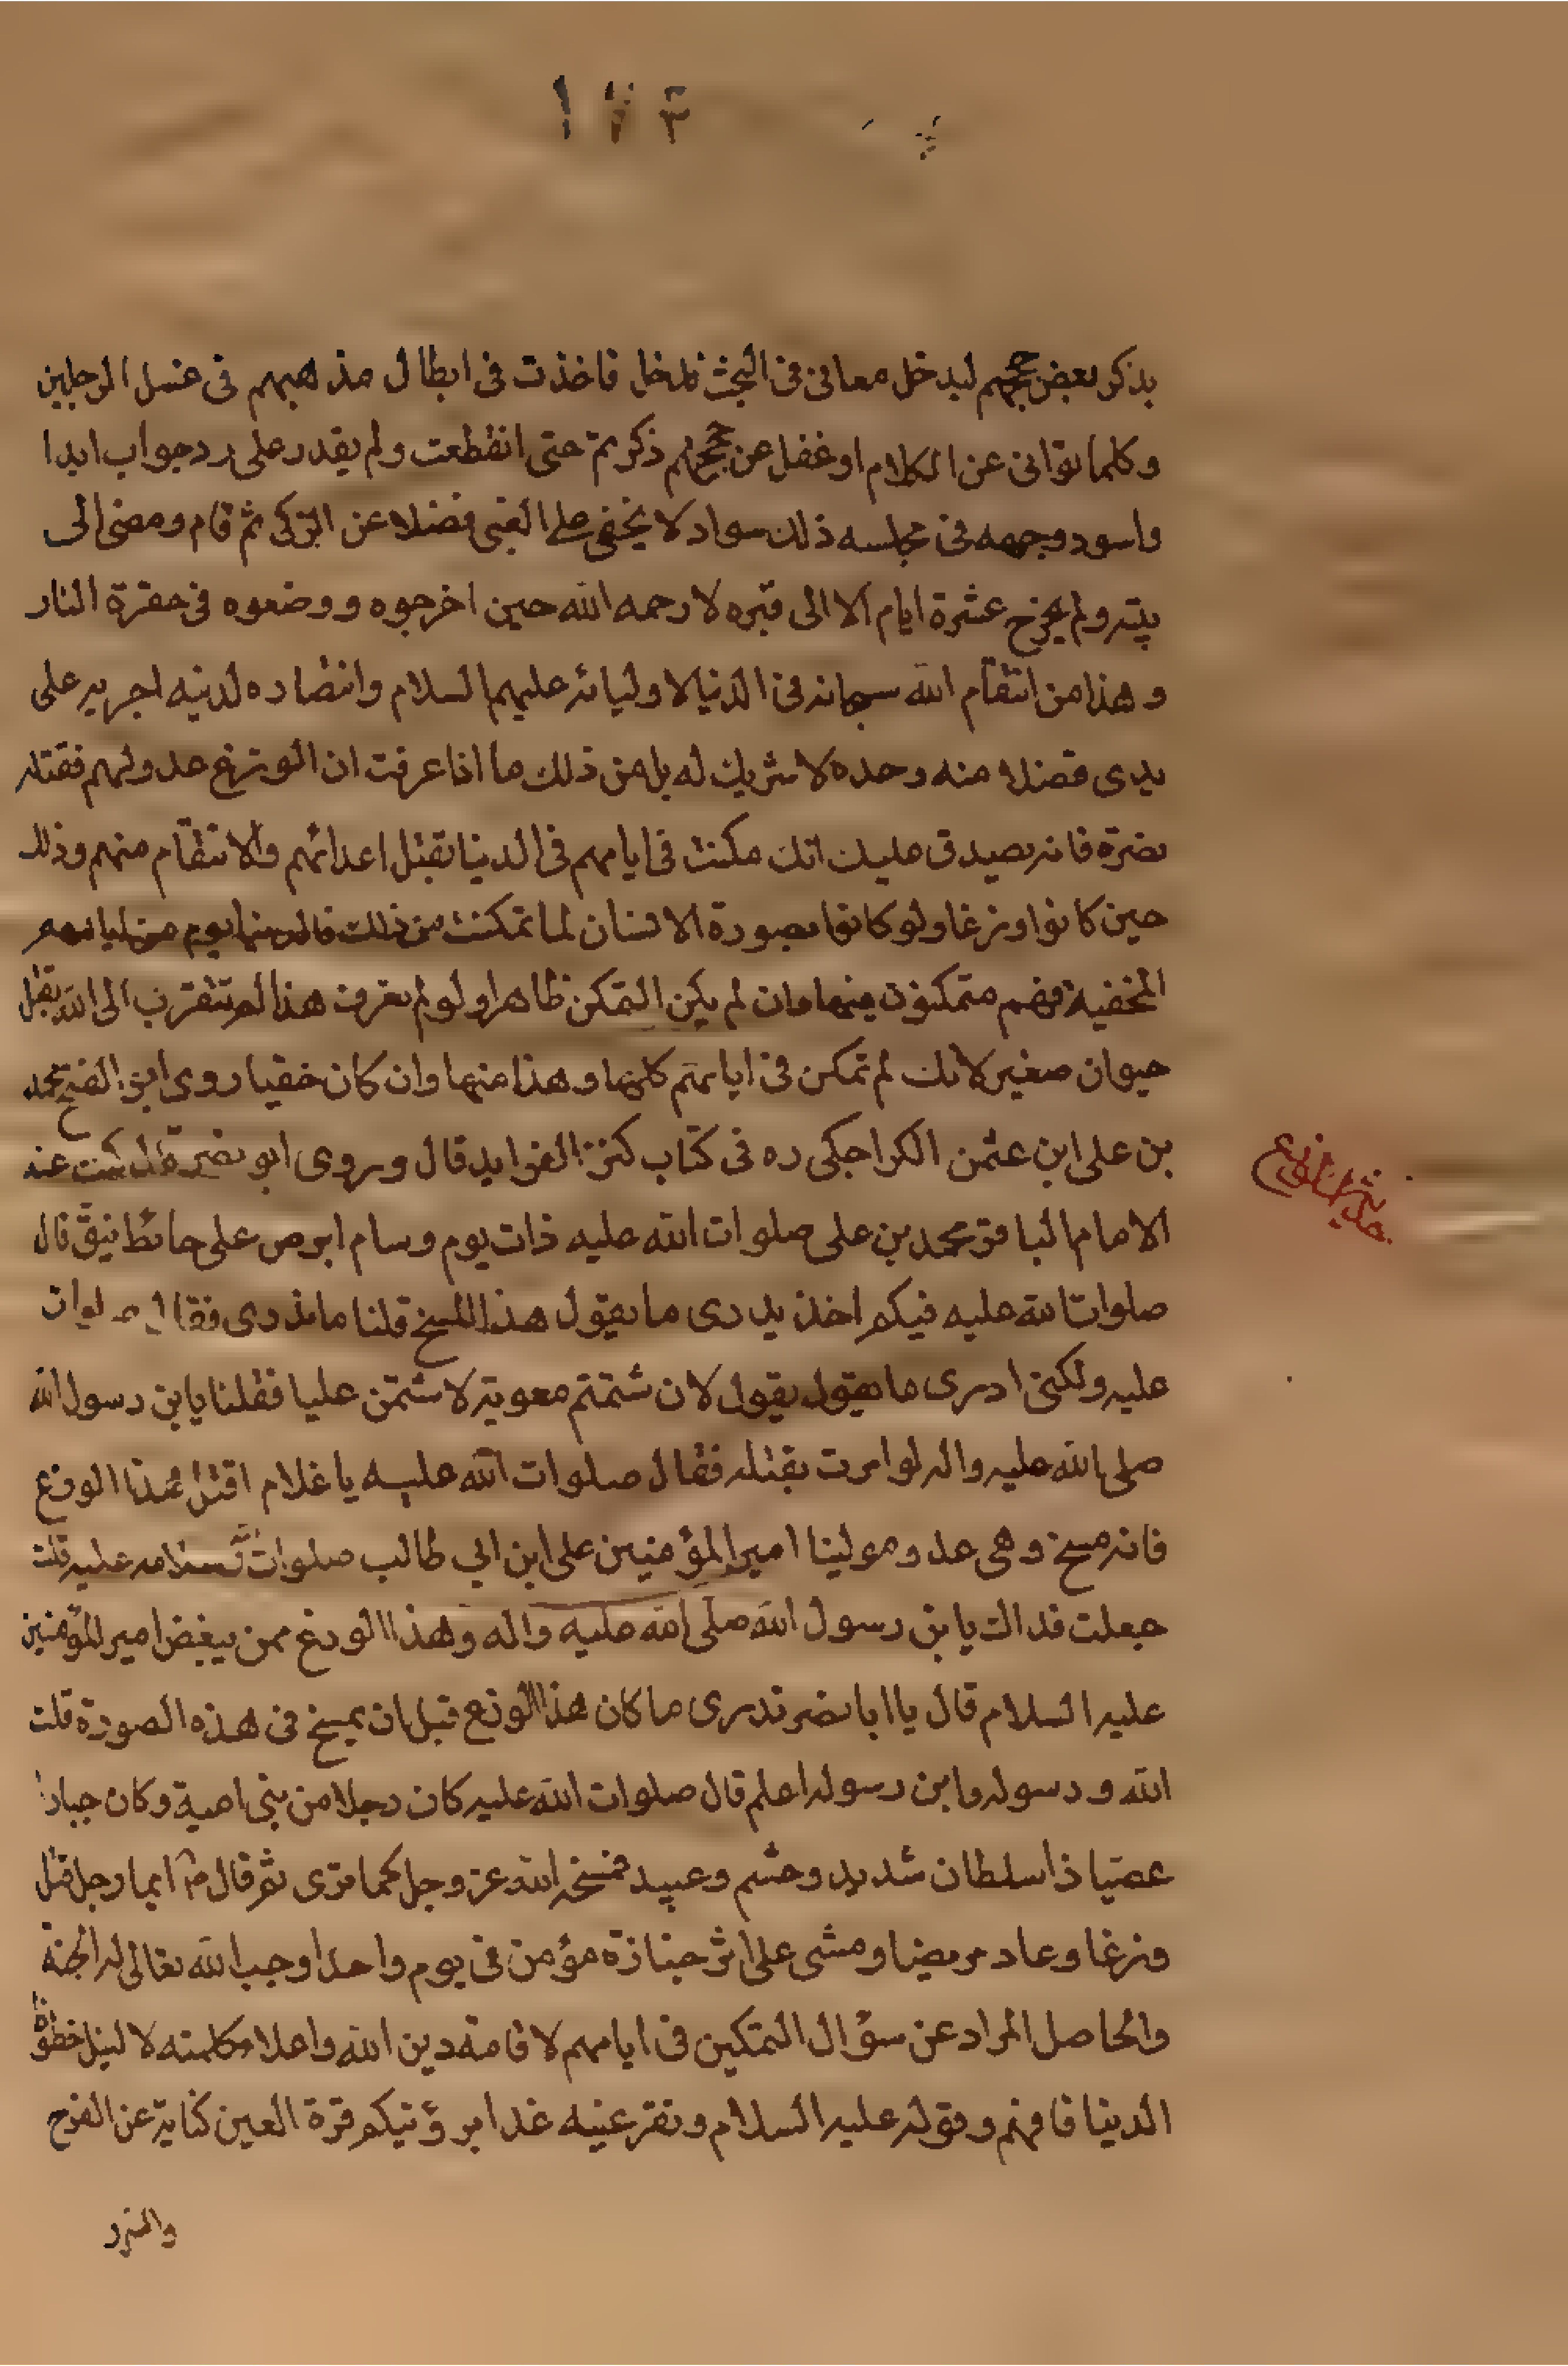 ١٢٣
بذكر بعض حججهم ليدخل معاني في البحث فدخل فاخذت في ابطال مذهبهم في غسل الرجلين
وكلما توانى عن الكلام او غفل عن حججهم ذكرته حتى انقطعت ولم يقدر على رد جواب ابدا
واسود وجهه في مجلسه ذلك سواد لا يخفى على الغبي فضلا عن الزكي ثم قام ومضى الى
بيته ولم يخرج عشرة ايام الا الى قبره لا رحمه الله حين اخرجوه ووضعوه في حفرة النار
وهذا من انتقام الله سبحانه في الدنيا لاوليائه عليهم السلام وانتصاره لدينه اجريه على
يدى فضلا منه وحده لا شريك له بل من ذلك ما اذا عرفت ان الوزغ عدو لهم فقتله
بضربة فانه يصدق عليك انك مكنت في ايامهم في الدنيا بقتل اعدائهم والانتقام منهم وذلك
حين كانوا وزغا ولو كانوا بصورة الانسان لما تمكنت من ذلك فاليوم من ايامهم
المخفية فهم متمكنون فيها وان لم يكن التمكن ظاهرا ولو لم تعرف هذا لم تتقرب الى الله بقتل
حيوان صغير لانك لم تمكن في ايامهم كلها وهذا منها وان كان خفيا روى ابو الفتح محمد
بن على ابن عثمن الكراجكى ره في كتاب كنز الفوايد قال وروى ابو بصير قال كنت عند
الامام الباقر محمد بن على صلوات الله عليه ذات يوم وسام ابرص على حائط ينق قال
صلوات الله عليه فيكم احد يدرى ما يقول هذا المسخ قلنا ما ندرى فقال صلوات
عليه ولكنى ادرى ما يقول يقول لان شتمتم معوية لاشتمن عليا فقلنا يا بن رسول الله
صلى الله عليه واله لو امرت بقتله فقال صلوات الله عليه يا غلام اقتل هذا الوزغ
فانه مسخ وهى عدو مولينا امير المؤمنين على ابن ابي طالب صلوات الله وسلامه عليه قلت
جعلت فداك يا بن رسول الله صلى الله عليه واله وهذا الوزغ ممن يبغض امير المؤمنين
عليه السلام قال يا ابا بصير تدرى ما كان هذا الوزغ قبل ان يمسخ في هذه الصورة قلت
الله ورسوله وابن رسوله اعلم قال صلوات الله عليه كان رجلا من بنى امية وكان جبارا
عصيا ذا سلطان شديد وحشم وعبيد فمسخه الله عز وجل كما ترى ثم قال ع ايما رجل قتل
وزغا وعاد مريضا ومشى على اثر جنازة مؤمن في يوم واحد اوجب الله تعالى له الجنة
والحاصل المراد عن سؤال التمكين في ايامهم لاقامة دين الله واعلاء كلمته لا لنيل حظوظ
الدنيا فافهم وقوله عليه السلام وتقر عينه غدا برؤيتكم قرة العين كناية عن الفرح